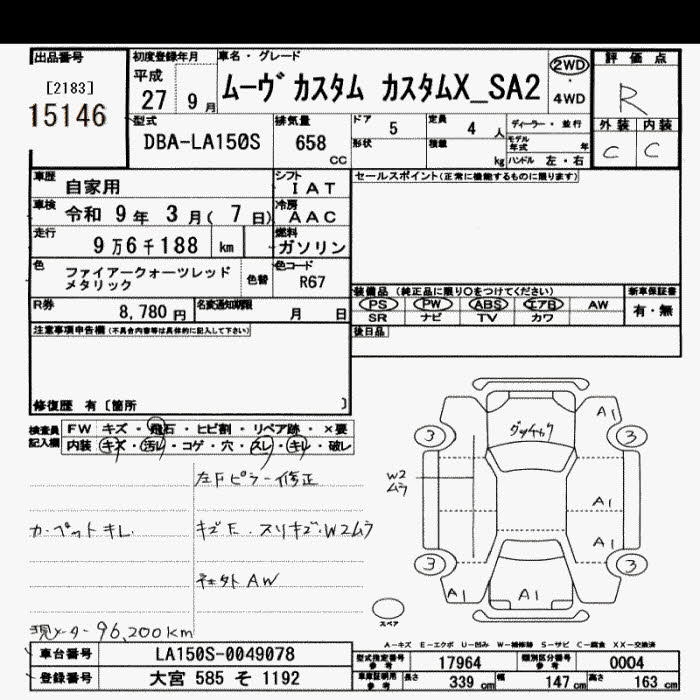 出品番号 初度登録年月 車名・グレード 評価点
[2183]
15146
平成
27 9月
ムーヴカスタム カスタムX_SA2
2WD
・
4WD
R
型式 排気量 ドア 5 定員 4人 ディーラー・並行 外装 内装
DBA-LA150S 658 cc
形状 積載 kg モデル年式 年
ハンドル 左・右
C C
車歴 自家用 シフト IAT セールスポイント(正常に機能するものに限ります)
車検 令和 9年 3月(7日) 冷房 AAC
走行 9万6千188 km 燃料 ガソリン
色 ファイアークォーツレッド
メタリック
色替 色コード R67
装備品 (純正品に限り○をつけてください) 新車保証書
R券 8,780円 名変通知期限 月 日
PS PW ABS エアB AW 有・無
SR ナビ TV カワ
注意事項申告欄(不具合内容等は具体的に記入して下さい) 後日品
修復歴 有〔箇所 〕
検査員記入欄 FW キズ・飛石・ヒビ割・リペア跡・×要
内装 キズ・汚レ・コゲ・穴・スレ・キレ・破レ
左Fピラー修正
カーペットキレ
キズE・スリキズ・W2ムラ
社外AW
現メーター96,200km
A1
3 3
W2
ムラ
A1
A1
3 3
A1 A1
スペア
A-キズ E-エクボ U-凹み W-補修跡 S-サビ C-腐食 XX-交換済
車台番号 LA150S-0049078 型式指定番号参考 17964 類別区分番号参考 0004
登録番号 大宮 585 そ 1192 車庫証明用参考 長さ 339cm 幅 147cm 高さ 163cm